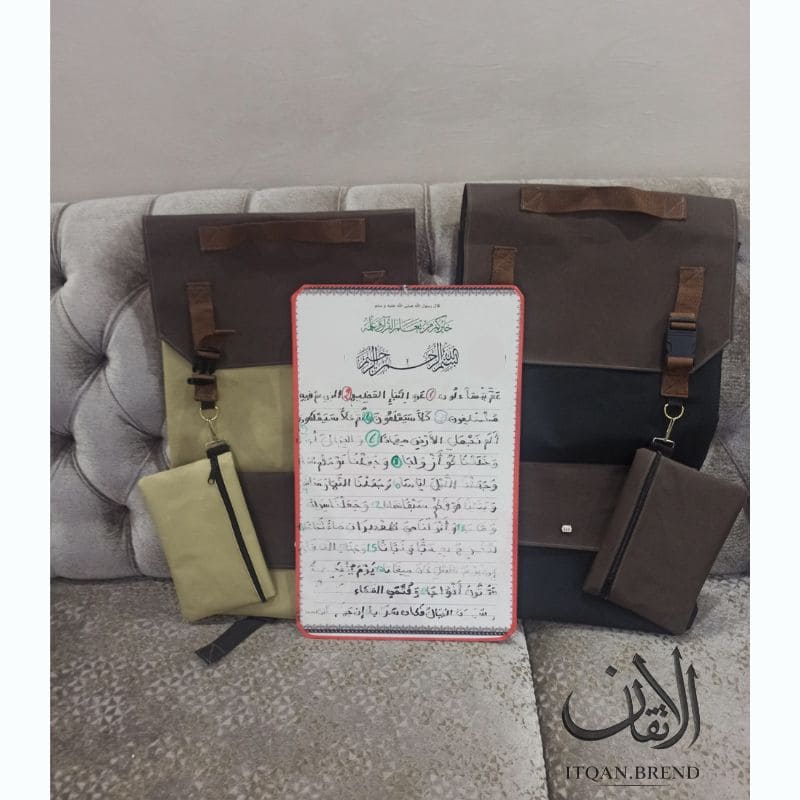 قال رسول الله صلى الله عليه و سلم
خيركم من تعلم القرآن وعلمه
بسم الله الرحمن الرحيم
عم يتساءلون 1 عن النبإ العظيم 2 الذي هم فيه
مختلفون كلا سيعلمون ثم كلا سيعلمون
ألم نجعل الأرض مهادا
وخلقناكم أزواجا وجعلنا نومكم
وجعلنا الليل لباسا وجعلنا النهار معاشا
وبنينا فوقكم سبعا شدادا وجعلنا سراجا
وهاجا وأنزلنا من المعصرات ماء ثجاجا
لنخرج به حبا ونباتا 15 وجنات
يوم
فتأتون أفواجا وفتحت السماء
الجبال فكانت سرابا إن
الإتقان
ITQAN.BREND